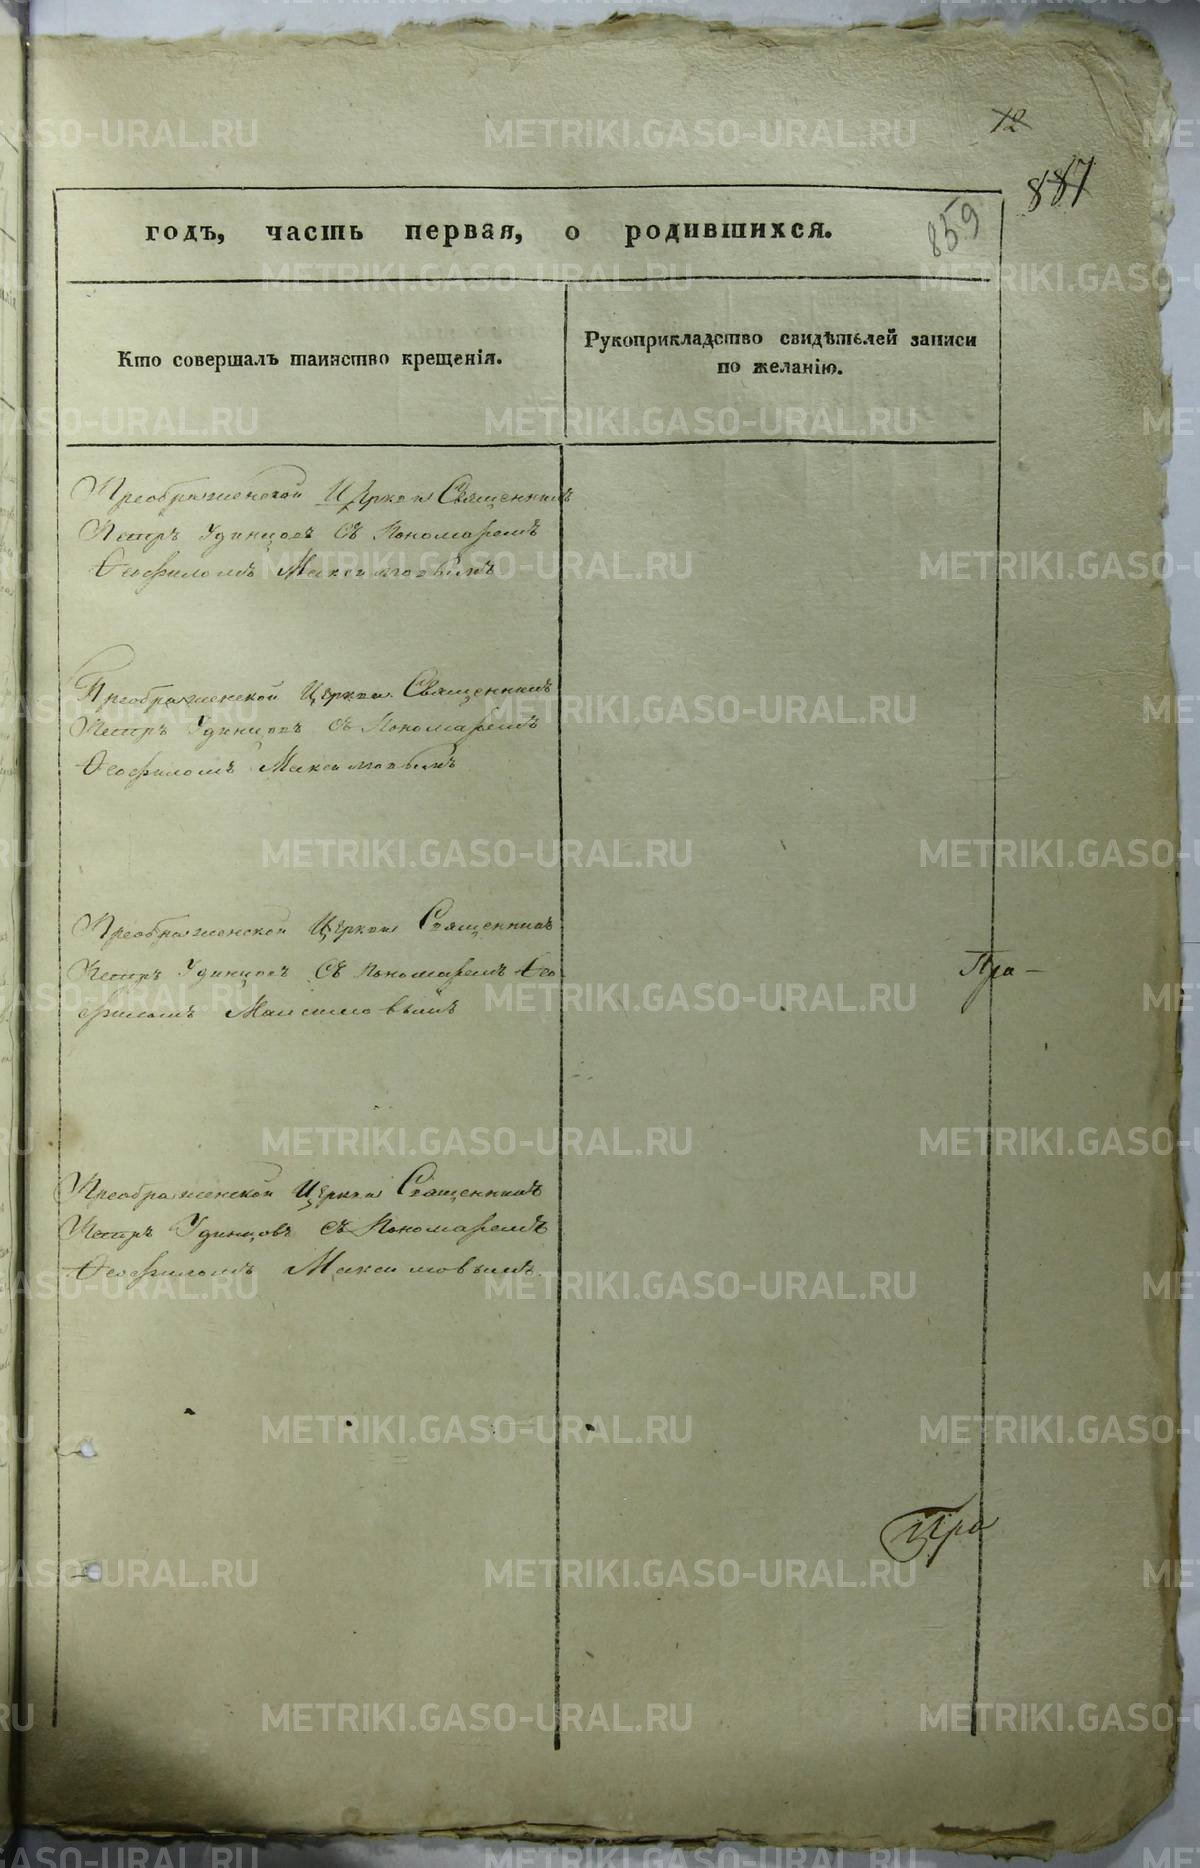 12
887
859
годъ, часть первая, о родившихся.
Кто совершалъ таинство крещенія.
Рукоприкладство свидѣтелей записи
по желанію.
Преображенской Церкви Священникъ
Петръ Удинцовъ Съ Пономаремъ
Ѳеофиломъ Максимовымъ
Преображенской Церкви Священникъ
Петръ Удинцовъ Съ Пономаремъ
Ѳеофиломъ Максимовымъ
Преображенской Церкви Священникъ
Петръ Удинцовъ Съ Пономаремъ Ѳео
филомъ Максимовымъ
Пра-
Преображенской Церкви Священникъ
Петръ Удинцовъ Съ Пономаремъ
Ѳеофиломъ Максимовымъ.
METRIKI.GASO-URAL.RU